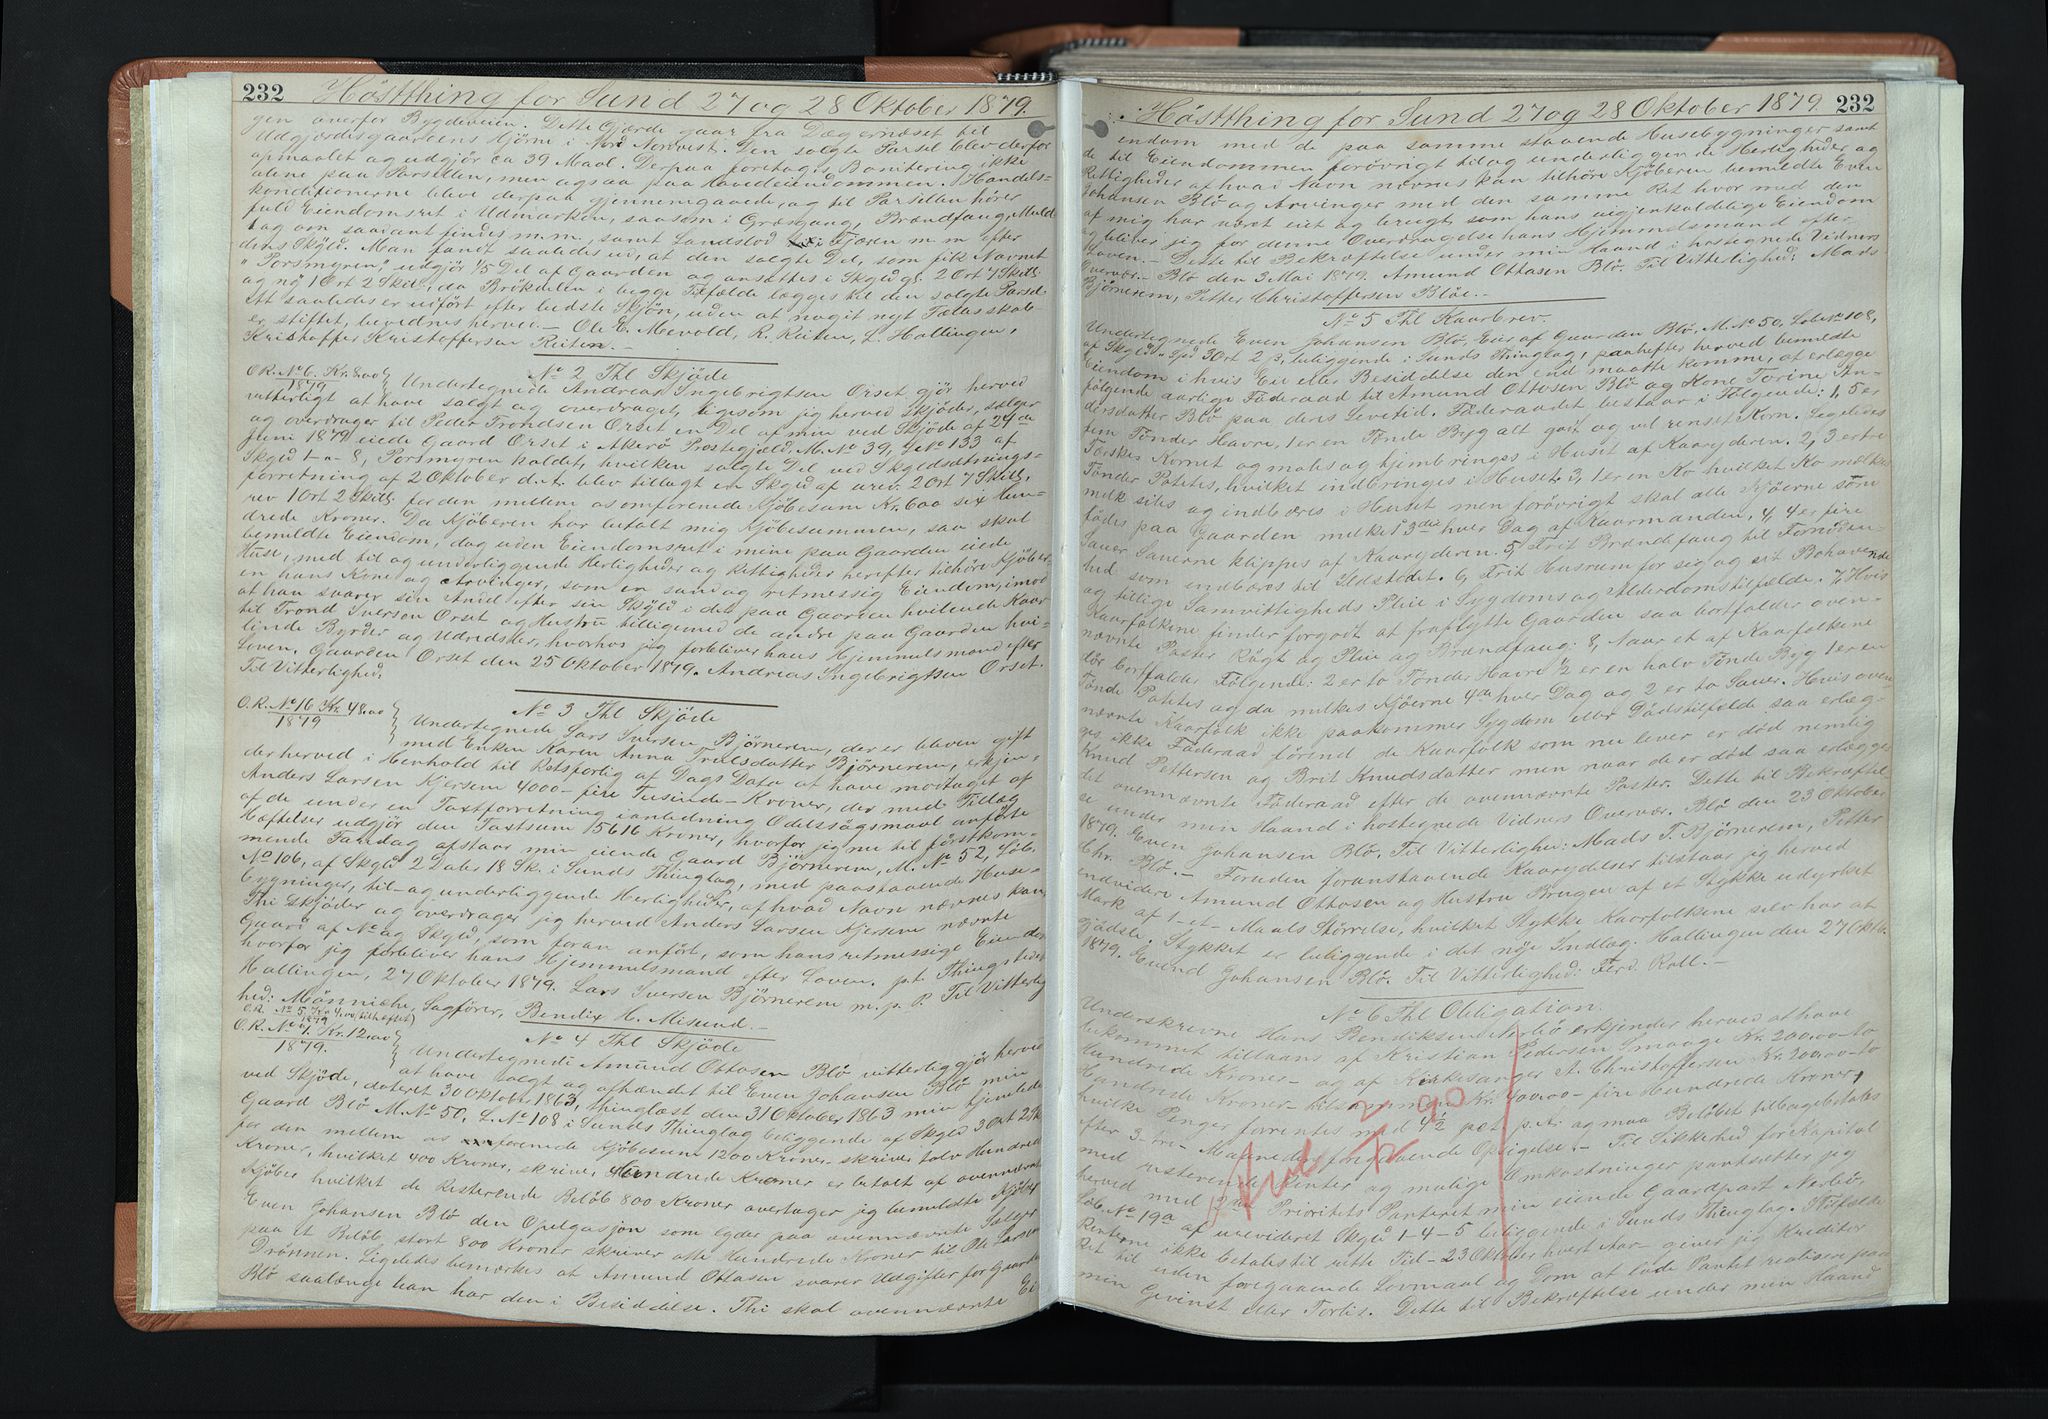 232 Høstthing for Sund 27 og 28 Oktober 1879.
gen overfor Bygdeveien. Dette Gjærde gaar fra Dægernæset til
Udgjærdesgaardens Hjørne i Nord Nordvest. Den solgte Parsel blev derfor
opmaalet og udgjør ca 39 Maal. Derpaa foretoges Bonitering ikke
alene paa Parsellen, men ogsaa paa Hovedeiendommen. Handels-
konditionerne bleve derpaa gjennemgaaede, og til Parsellen hører
fuld Eiendomsret i Udmarken, saasom i Græsgang, Brændfang, Muld
tag om saadant findes m.m., samt Landslod i Fjæren m. m efter
dens Skyld. Man fandt saaledes ud, at den solgte Del, som fik Navnet
"Porsmyren", udgjør 1/5 Del af Gaarden og ansattes i Skyld gl. 2 Ort 7 Skill.
og ny 1 Ort 2 Skill, da Brøkdelen i begge Tilfælde lægges til den solgte Parsel
Alt saaledes er udført efter bedste Skjøn, uden at noget nyt Fællesskab
er stiftet, bevidnes herved. — Ole E. Mevold, R. Reiten, L. Hallingen,
Kristoffer Kristoffersen Reiten. —
No 2 Thl Skjøde
O.R. No 6. Kr. 8,00
1879
Undertegnede Andreas Ingebrigtsen Orset gjør herved
vitterligt at have solgt og overdraget, ligesom jeg herved skjøder, sælger
og overdrager til Peder Trondsen Orset en Del af min ved Skjøde af 24de
Juni 1879 eiede Gaard Orset i Akerø Præstegjæld, M. No 39, L No 133 af
Skyld 1-"- 8, Porsmyren kaldet, hvilken solgte Del ved Skyldsætnings-
forretning af 2 Oktober d.A. blev tillagt en Skyld af urev. 2 Ort 7 Skill,
rev 1 Ort 2 Skill: for den mellem os omforenede Kjøbesum Kr. 600 sex Hun-
drede Kroner. Da Kjøberen har betalt mig Kjøbesummen, saa skal
bemeldte Eiendom, dog uden Eiendomsret i mine paa Gaarden eiede
Huse, med til og underliggende Herligheder og Rettigheder herefter tilhøre Kjøber-
en hans Kone og Arvinger, som en sand og retmessig Eiendom, imod
at han svarer sin Andel efter sin Skyld i det paa Gaarden hvilende Kaar
til Trond Iversen Orset og Hustru tilligemed de andre paa Gaarden hvi-
lende Byrder og Udredsler, hvorhos jeg forbliver hans Hjemmelsmand efter
Loven. Gaarden Orset den 25 Oktober 1879. Andreas Ingebrigtsen Orset.
Til Vitterlighed:
No 3 Thl Skjøde
O.R. No 16 Kr. 48,00
1879
Undertegnede Lars Iversen Bjørnerem, der er bleven gift
med Enken Karen Anna Trulsdatter Bjørnerem, erkjen-
der herved i Henhold til Retsforlig af Dags Dato at have modtaget af
Anders Larsen Kjersem 4000 - fire Tusinde - Kroner, der med Tillæg
af de under en Taxtforretning i anledning Odelssøgsmaal anførte
Hæftelser udgjør den Taxtsum 15616 Kroner, hvorfor jeg nu til førstkom-
mende Faredag afstaar min eiende Gaard Bjørnerem, M. No 52, Løb.
No 106, af Skyld 2 Daler 18 Sk. i Sunds Thinglag, med paastaaende Huse-
bygninger, til- og underliggende Herligheder, af hvad Navn nævnes kan,
Thi skjøder og overdrager jeg herved Anders Larsen Kjersem nævnte
Gaard af No og Skyld, som foran anført, som hans retmessige Eiendom
hvorfor jeg forbliver hans Hjemmelsmand efter Loven. p.t. Thingstedet
Hallingen, 27 Oktober 1879. Lars Iversen Bjørnerem m. p. P. Til Vitterlig
hed: Månniche, Sagfører, Bendix H. Misund. —
O.R. No 5 Kr 4,00 (tilheftet)
1879
No 4 Thl Skjøde
O.R. No 7. Kr. 12,00
1879.
Undertegnede Amund Ottosen Blø vitterliggjør herved
at have solgt og afhændet til Even Johansen Blø min
ved Skjøde, dateret 30 Oktober 1863, thinglæst den 31 Oktober 1863 min hjemlede
Gaard Blø M. No 50, L. No 108 i Sunds Thinglag beliggende af Skyld 3 Ort 2 Sk
for den mellem os accorderede Kjøbesum 1200 Kroner skriver tolv Hundrede
Kroner, hvilket 400 Kroner, skriver 4 Hundrede Kroner er betalt af ovennævnte
Kjøber hvilket de Resterende Beløb 800 Kroner overtager jeg bemeldte Kjøber
Even Johansen Blø den Oplgasjon som lyder paa ovennævnte Sælger
paa et Beløb stort 800 Kroner skriver otte Hundrede Kroner til Ole Larsen
Drønnen. Ligeledes bemærkes at Amund Ottosen svarer Udgifter for Gaarden
Blø saalænge han har den i Besiddelse. Thi skal ovennævnte Ei
Høstthing for Sund 27 og 28 Oktober 1879 232
endom med de paa samme staaende Husebygninger samt
de til Eiendommen forøvrigt til og underliggende Herligheder og
Rettigheder af hvad Navn nævnes kan tilhøre Kjøberen bemeldte Even
Johansen Blø og Arvinger med den samme Ret hvor med den
af mig har været eiet og brugt som hans uigjenkaldelige Eiendom
og bliver jeg for denne Overdragelse hans Hjemmelsmand efter
Loven. — Dette til Bekræftelse under min Haand i hostegnede Vidners
Overvær. — Blø den 3 Mai 1879. Amund Ottosen Blø. Til Vitterlighed: Mads
Bjørnerem, Petter Christoffersen Bløe. —
No 5 Thl Kaarbrev.
Undertegnede Even Johansen Blø, Eier af Gaarden Blø, M. No 50, Løb No 108,
af Skyld - Spd 3 Ort 2 β, beliggende i Sunds Thinglag, paahefter herved bemeldte
Eiendom i hvis Eie eller Besiddelse den end maatte komme, at erlægge
følgende aarlige Føderaad til Amund Ottosen Blø og Kone Torine An-
dersdatter Blø paa deres Levetid. Føderaadet bestaar i Følgende: 1, 5 er
fem Tønder Havre, 1 er en Tønde Byg alt godt og vel renset Korn. Ligeledes
Tærskes Kornet og males og hjembringes i Huset af Kaaryderen. 2, 3 er tre
Tønder Potetes, hvilket indbringes i Huset. 3, 1 er en Ko hvilket Ko mælkes
melk siles og indbæres i Huset men forøvrigt skal alle Kjøerne som
fødes paa Gaarden melkes 3die hver Dag af Kaarmanden, 4, 4 er fire
Sauer Sauerne klippes af Kaaryderen. 5, Frit Brændefang til Fornøden-
hed som indbæres til Ildstedet. 6, Frit Husrum for sig og sit Bohavende
og tillige Samvittigheds Pleie i Sygdoms og Alderdomstilfælde. 7, Hvis
Kaarfolkene finder forgodt at fraflytte Gaarden saa bortfalder oven-
nævnte Poster Røgt og Pleie og Brændfang: 8, Naar et af Kaarfolkene
dør bortfalder Følgende: 2 er to Tønder Havre 1/2 er en halv Tønde Byg 1 er en
Tønde Potetes og da melkes Kjøerne 4de hver Dag og 2 er to Sauer. Hvis oven-
nævnte Kaarfolk ikke paakommer Sygdom eller Dødstilfælde saa erlæg-
ges ikke Føderaad førend de Kaarfolk som nu lever er død nemlig
Knud Pettersen og Brit Knudsdatter men naar de er død saa erlægges
det ovennævnte Føderaad efter de ovennævnte Poster. Dette til Bekræftel-
se under min Haand i hostegnede Vidners Overvær. Blø den 23 Oktober
1879. Even Johansen Blø. Til Vitterlighed: Mads T. Bjørnerem, Petter
Chr. Blø. — Foruden foranstaaende Kaarydelser tilstaar jeg herved
endvidere Amund Ottosen og Hustru Brugen af et Stykke udyrket
Mark af 1 - et - Maals Størrelse, hvilket Stykke Kaarfolkene selv har at
gjødsle. Stykket er beliggende i det nøie Indlæg. Hallingen den 27 Oktb.
1879. Evend Johansen Blø. Til Vitterlighed: Ferd. Roll. —
No 6 Thl Obligation.
Underskrevne Hans Bendiksen Nerbø erkjender herved at have
bekommet tillaans af Kristian Pedersen Smaage Kr. 200,00 - to
Hundrede Kroner - og af Kirkesanger A. Christoffersen Kr. 200,00 - to
Hundrede Kroner - tilsammen Kr. 400,00 - fire Hundrede Kroner,
hvilke Penger forrentes med 4 1/2 pct p. A. og maa Beløbet tilbagebetales
efter 3 - tre - Maaneders foregaaende Opsigelse. - Til Sikkerhed for Kapital
med resterende Renter og mulige Omkostninger pantsætter jeg
herved med 2den Prioritets Panteret min eiende Gaardpart Nerbø,
Løb. No 19a af urevideret Skyld 1-4-5 beliggende i Sunds Thinglag. Tilfælde
Renterne ikke betales til rette Tid - 23 Oktober hvert Aar - giver jeg Kreditor
Ret til uden foregaaende Lovmaal og Dom at lade Pantet realisere paa
min Gevinst eller Forlis. Dette til Bekræftelse under min Haand